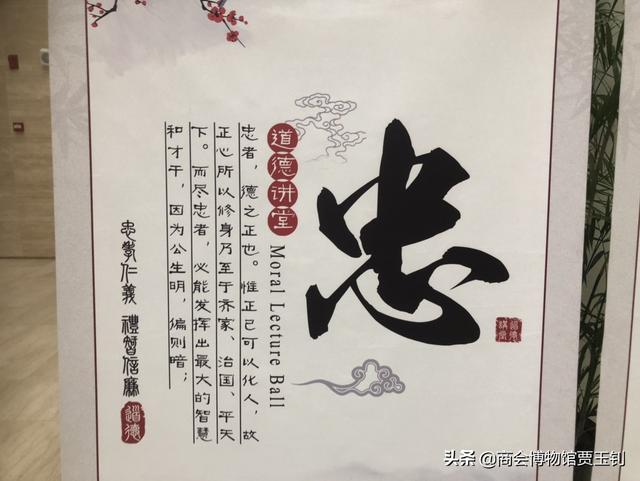 忠
道德講堂
道德讲堂
Moral Lecture Ball
忠者，德之正也。惟正己可以化人，故
正心所以修身乃至于齐家、治国、平天
下。而尽忠者，必能发挥出最大的智慧
和才干，因为公生明，偏则暗；
忠孝仁義 禮智信廉
道德
头条 @商会博物馆贾玉钊